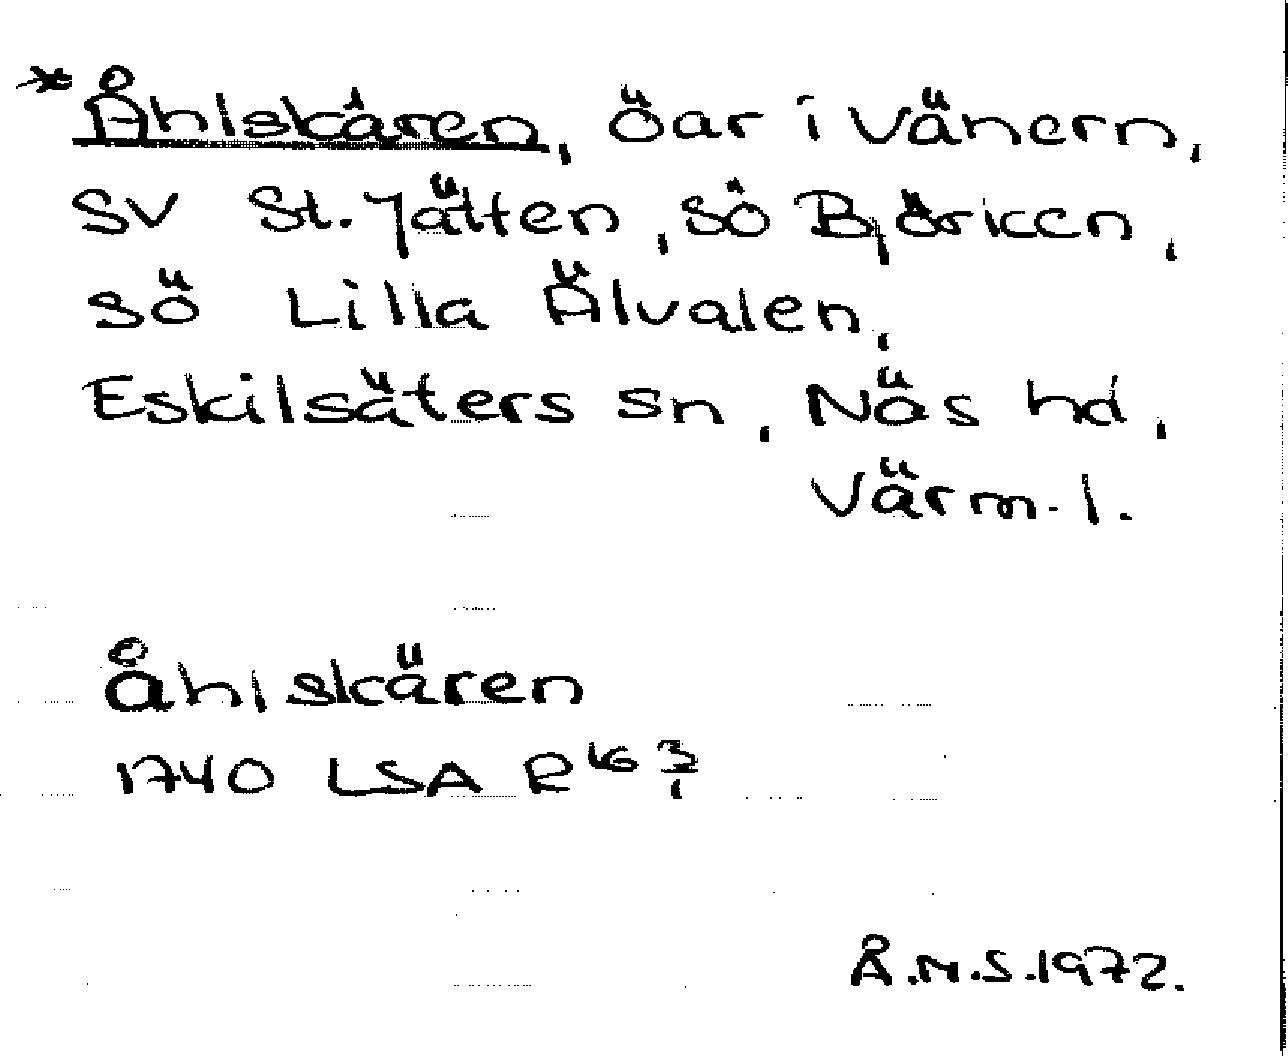 *Åhlskären, öar i Vänern,
SV St. Jätten, SÖ Björken,
SÖ Lilla Älvalen,
Eskilsäters sn, Näs hd,
Värm. l.
Åhlskären
1740 LSA R16 3/1
Å.N.S. 1972.